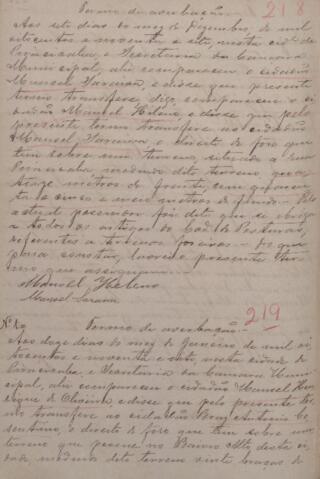 Termo de averbação. 218
Aos sete dias do mez de Dezembro, de mil
oitocentos e noventa e seis, nesta cidade de
Piracicaba, e Secretaria da Camara
Municipal, ahi compareceu o cidadão
Manoel e disse que presente
termo transfere digo, compareceu o ci
dadão Manoel Heleno, e disse que pelo
presente termo transfere ao cidadão
Manoel o direito de fôro que
tem sobre um terreno, situado a rua
Pernambuco medindo dito terreno,
metros de frente, com quaren
ta e cinco e meio metros de fundo. Pelo
foi dito que se obriga
a todos os artigos do Cod. de Posturas,
referentes a terrenos foreiros. De que
para constar, lavrei o presente ter
mo que assignam.
Manoel Heleno
Manoel
219
Nº Termo de averbação
Aos doze dias do mez de Janeiro de mil oi
tocentos e noventa e sete, nesta cidade de
Piracicaba e Secretaria da Camara Muni
cipal, ahi compareceu o cidadão Manoel Hen
rique de Oliveira e disse que pelo presente ter
mo transfere ao cidadão Antonio
o direito de fôro que tem sobre um
terreno que possue no Bairro Alto desta ci
dade medindo dito terreno vinte braças de